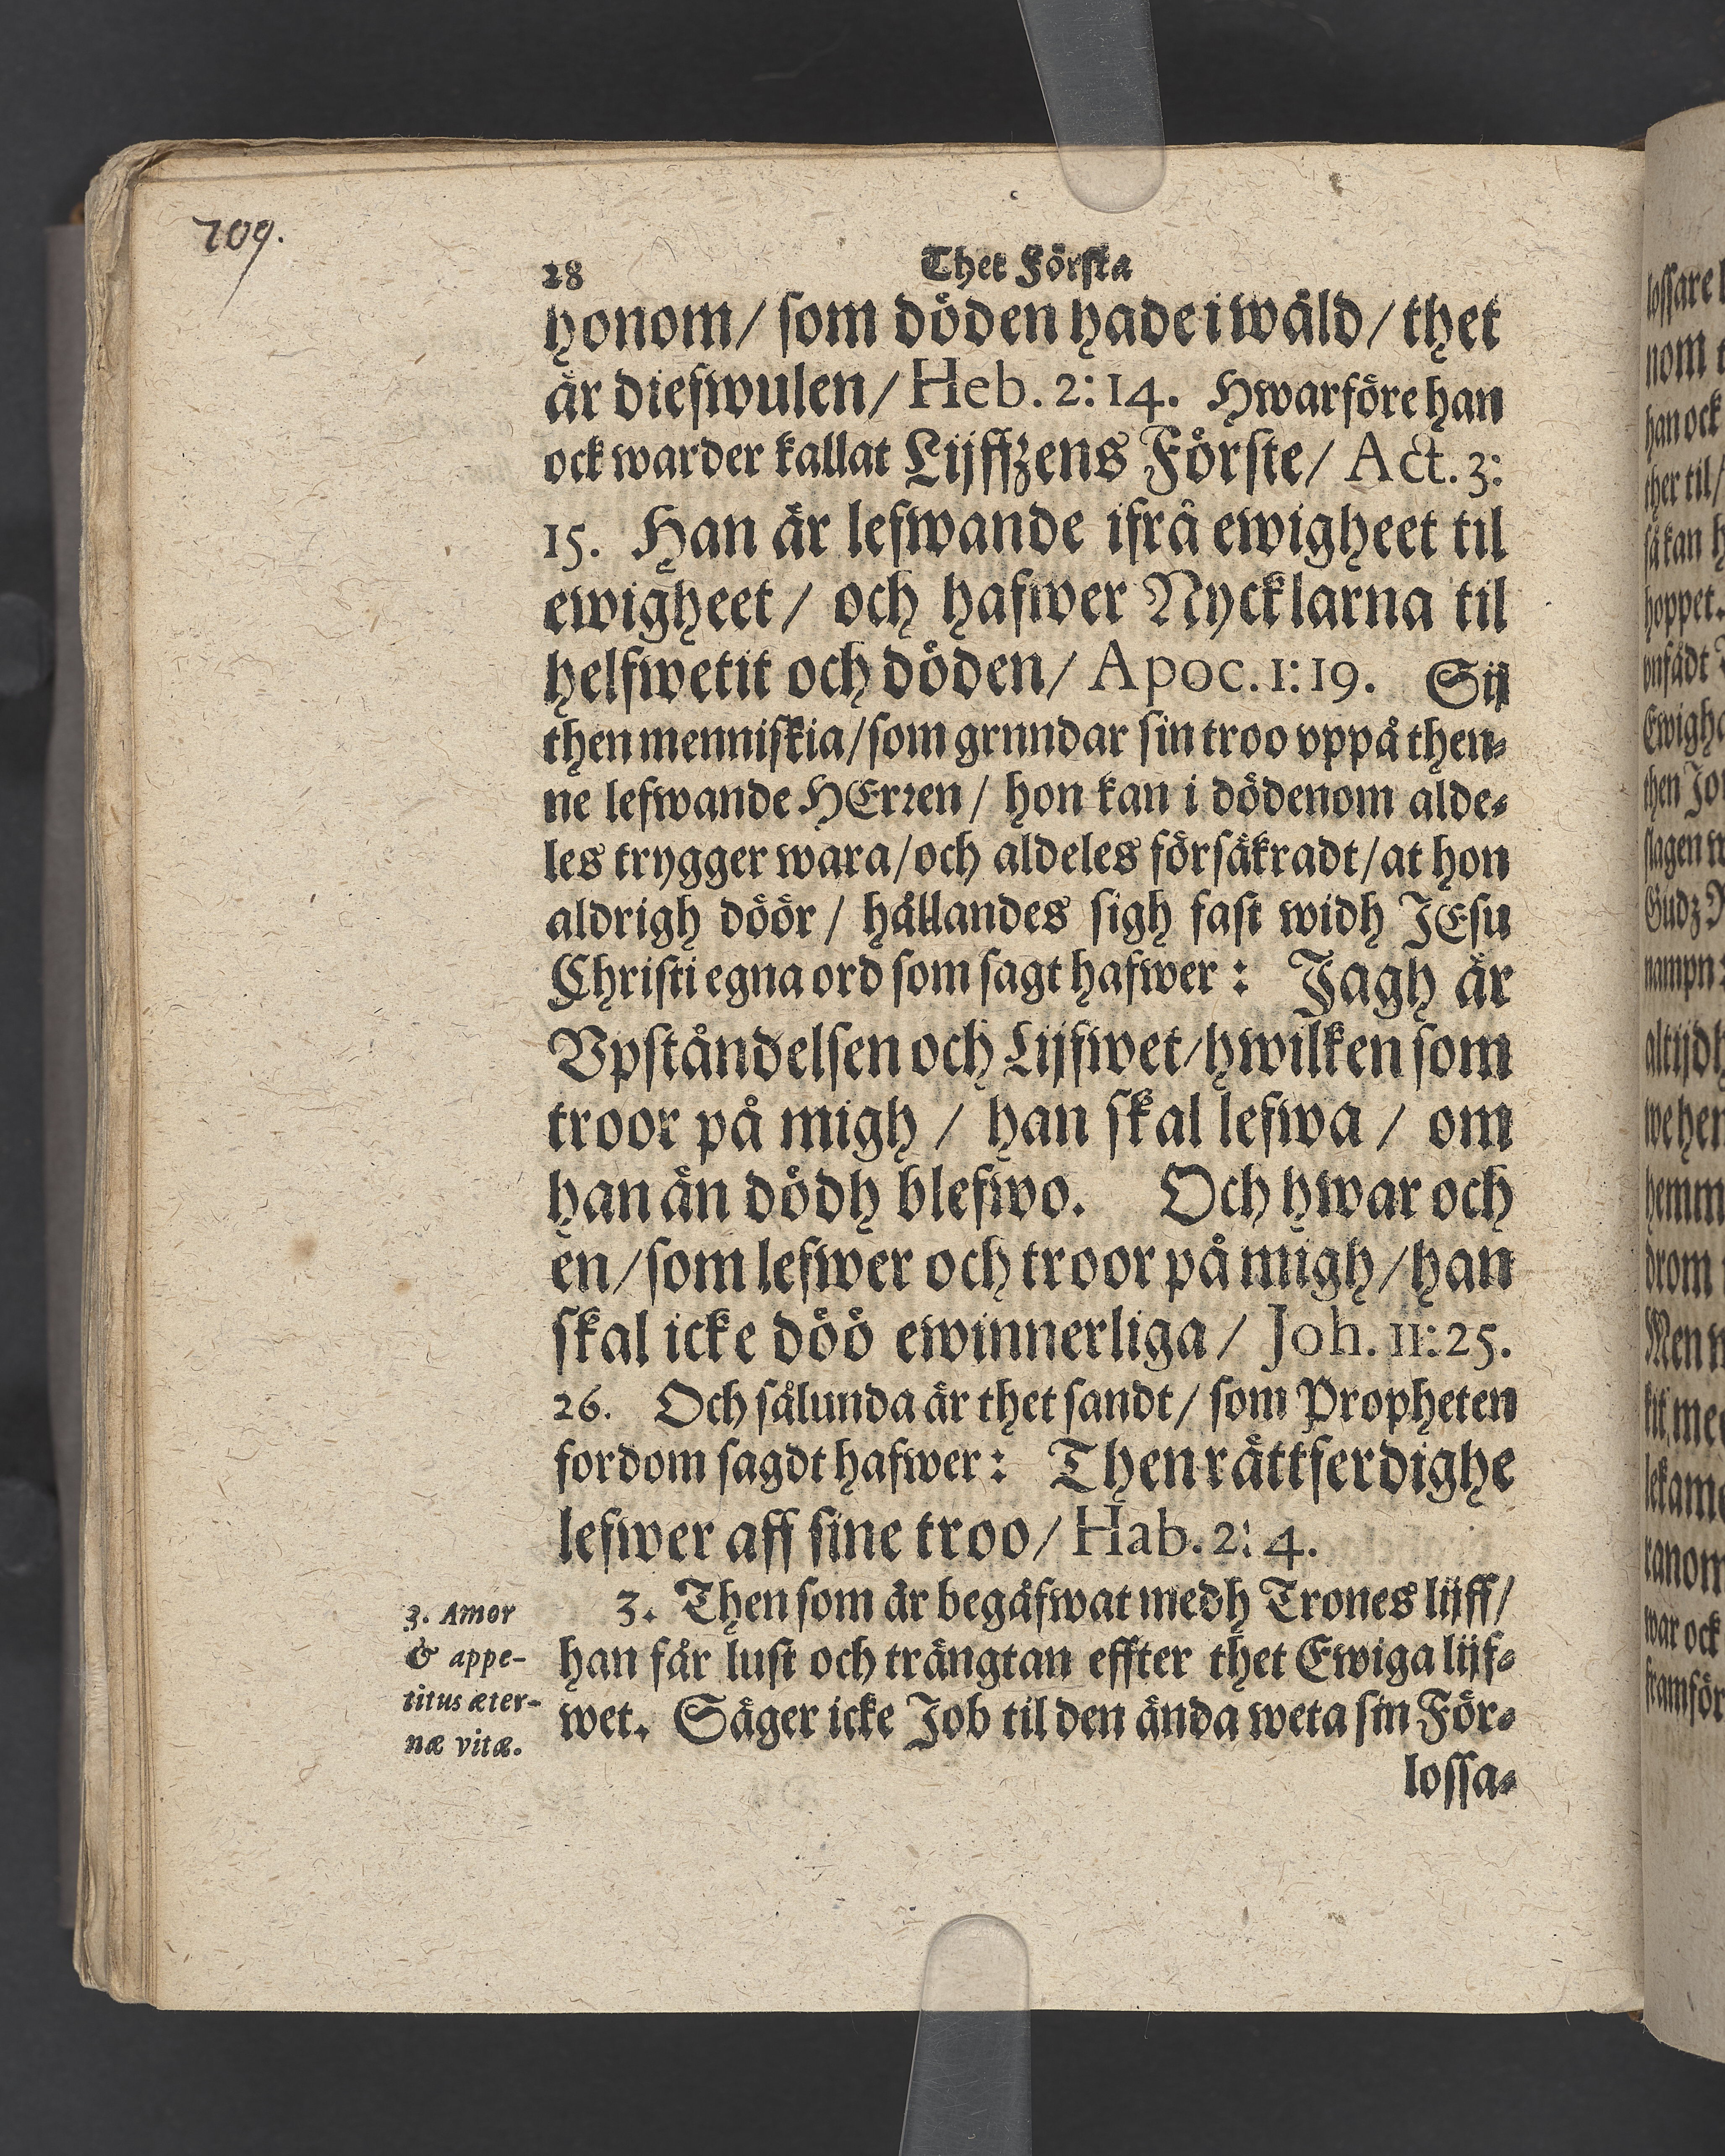 709.
28 Thet Första
honom/ som döden hade i wåld/ thet
är diefwulen/ Heb. 2: 14. Hwarföre han
ock warder kallat Lijffzens Förste/ Act. 3:
15. Han är lefwande ifrå ewigheet til
ewigheet/ och hafwer Nycklarna til
helfwetit och döden/ Apoc. 1: 19. Sij
then menniskia/ som grnndar sin troo vppå then-
ne lefwande HErren/ hon kan i dödenom alde-
les trygger wara/ och aldeles försäkradt/ at hon
aldrigh döör/ hållandes sigh fast widh JEsu
Christi egna ord som sagt hafwer: Jagh är
Vpståndelsen och Lijfwet/ hwilken som
troor på migh/ han skal lefwa/ om
han än dödh blefwo. Och hwar och
en/ som lefwer och troor på migh/ han
skal icke döö ewinnerliga/ Joh. 11: 25.
26. Och sålunda är thet sandt/ som Propheten
fordom sagdt hafwer: Then rättferdighe
lefwer aff sine troo/ Hab. 2: 4.
3. Then som är begåfwat medh Trones lijff/
han får lust och trängtan effter thet Ewiga lijf-
wet. Säger icke Job til den ända weta sin För-
lossa-
3. Amor
& appe-
titus æter-
næ vitæ.
lossare
nom
han ock
ther til/
så kan
hoppet.
then
slagen
Gudz
nampn
altijdh
drom
Men
war ock
framför